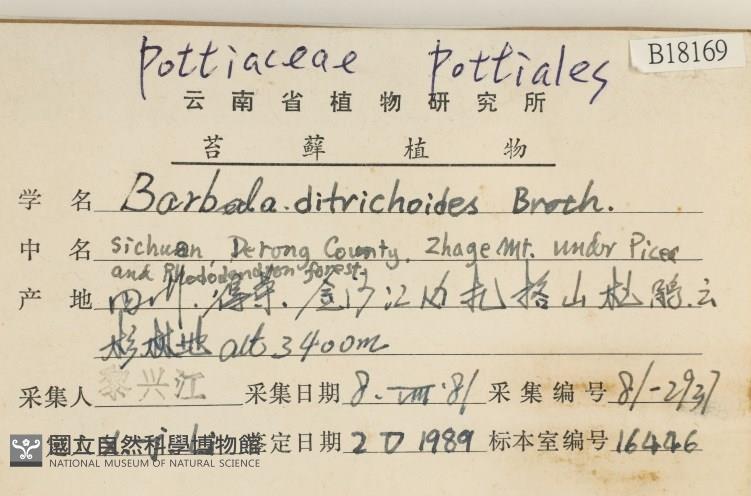 B18169
Pottiaceae Pottiales
云南省植物研究所
苔藓植物
学名 Barbula ditrichoides Broth.
中名 Sichuan, Derong County, Zhage Mt. under Picea
and Rhododendron forest.
产地 四川.得荣.金沙江 扎格山 杜鹃.云
杉林地 alt 3400m
采集人 黎兴江 采集日期 8.VIII.81 采集编号 81-2937
鉴定日期 20 1989 标本室编号 16446
國立自然科學博物館
NATIONAL MUSEUM OF NATURAL SCIENCE